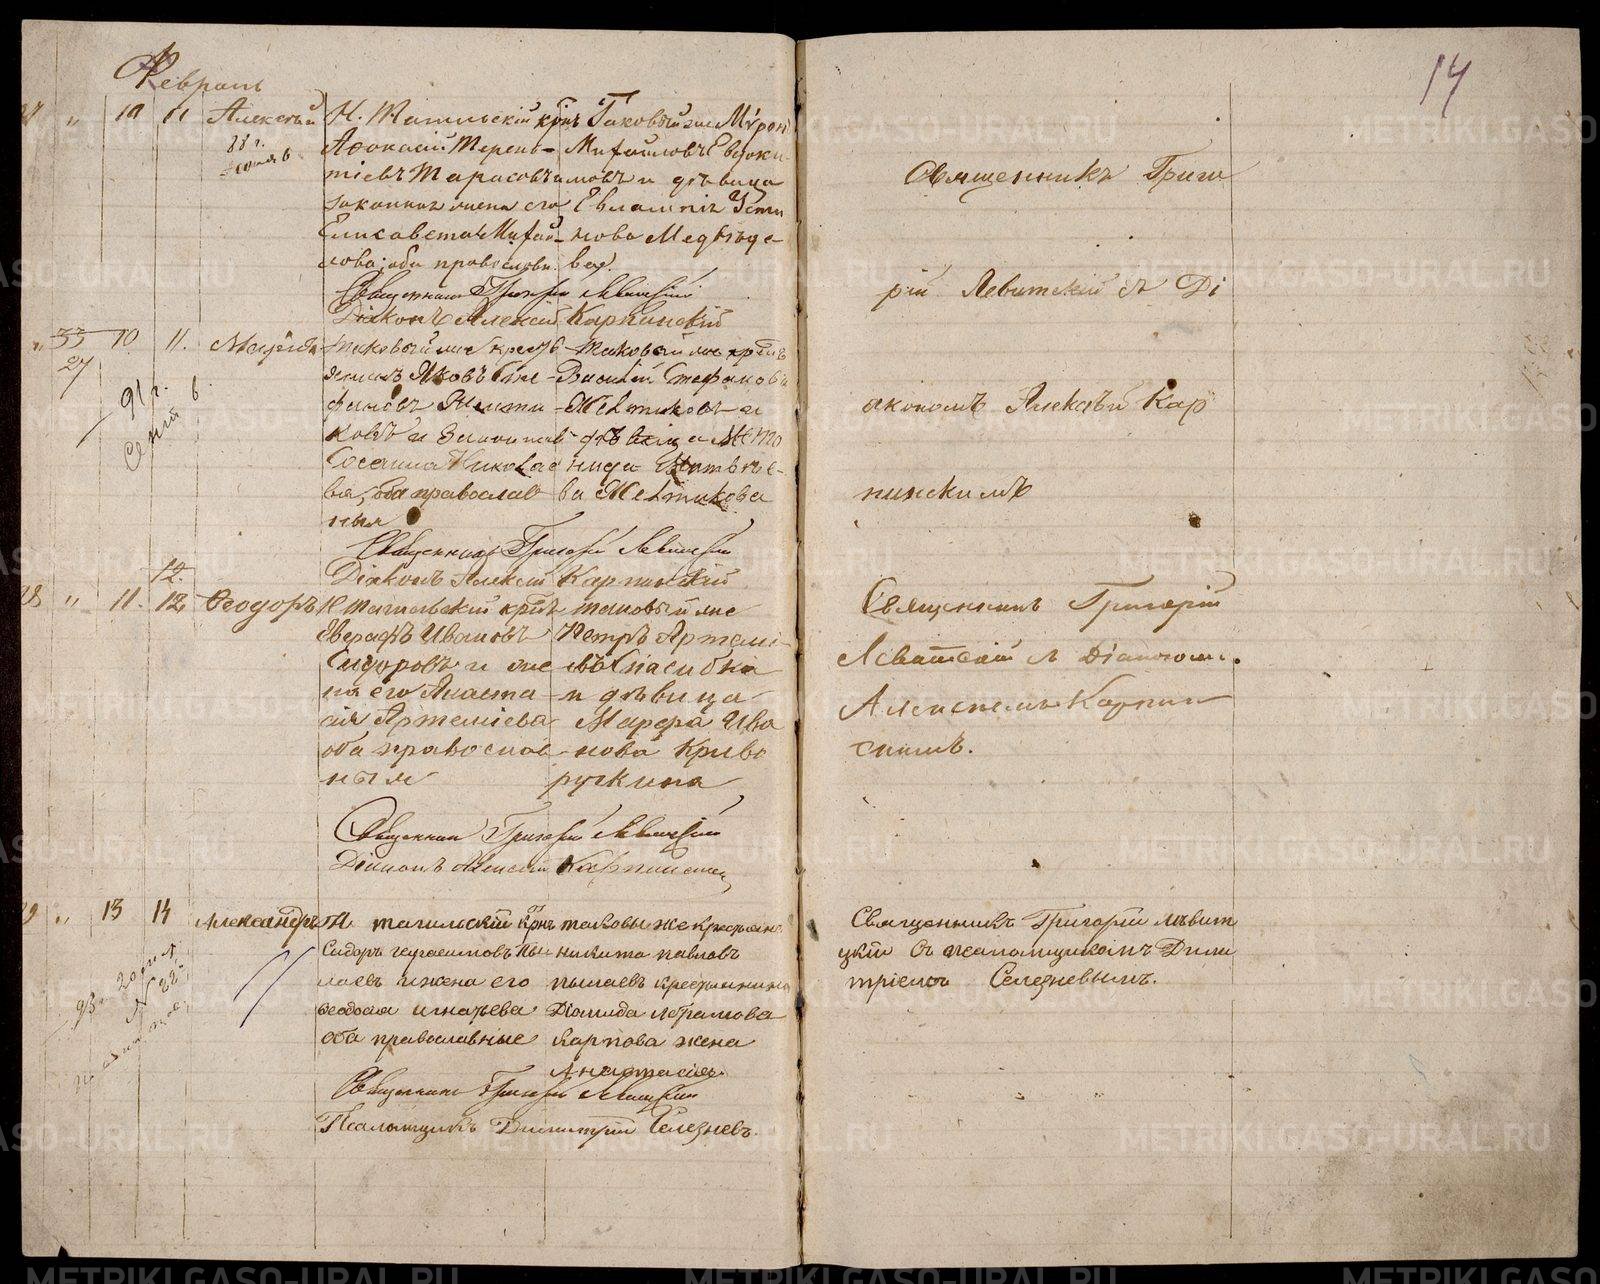 Февраль
14
10 11 Алексѣй
88 г.
Н. Тагильскій крнъ
Аѳонасій Терень-
тіевъ Тарасовъ
законная жена его
Елисавета Михай-
лова, оба правослов.
Таковый же Мѵронъ
Михайловъ Евдоки-
мовъ и дѣвица
Евлампія Усти
нова Медвѣде-
ва.
Священникъ Григорій Левитскій
Діаконъ Алексій Карпинскій
Священникъ Григо
рій Левитскій съ Ді
акономъ Алексѣй Кар
пинскимъ
33 10 11.
27
91 г.
таковый же крестъ
янинъ Яковъ Сте-
фановъ Желти
ковъ и законная
Сосанна Николае
ва, оба православ
ныя
таковый же крнъ
Василій Стефановъ
Желтиковъ и
дѣвица
нида
ва Желтикова
Священникъ Григорій Левитскій
Діаконъ Алексій Карпинскій
12.
28 " 11. 12 Ѳеодоръ
Н Тагильскій крнъ
Евграфъ Ивановъ
Сидоровъ и же
на его Анаста
сія Артеміева
оба православ
ныя
таковый же
Петръ Артемі-
евъ Спасибка
и дѣвица
Марфа Ива
нова Криво
ручкина
Священникъ Григорій Левитскій
Діаконъ Алексій Карпинскій
Священникъ Григорій
Левитскій съ Діакономъ
Алексѣемъ Карпин
скимъ.
29 " 13 14 Александръ
93
Н тагильскій крнъ
Сидоръ герасимовъ Пы
лаевъ и жена его
ѳеодосія игнатьева
оба православные
таковы же крестьяне
никита павловъ
пылаевъ крестьянина
Діомида Абрамова
Карпова жена
Анастасія
Священникъ Григорій Левитскій
Псаломщикъ Димитрій Селезневъ.
Священникъ Григорій лѣвит
цкій съ псаломщикомъ Дими
тріемъ Селезневымъ.
METRIKI.GASO-URAL.RU